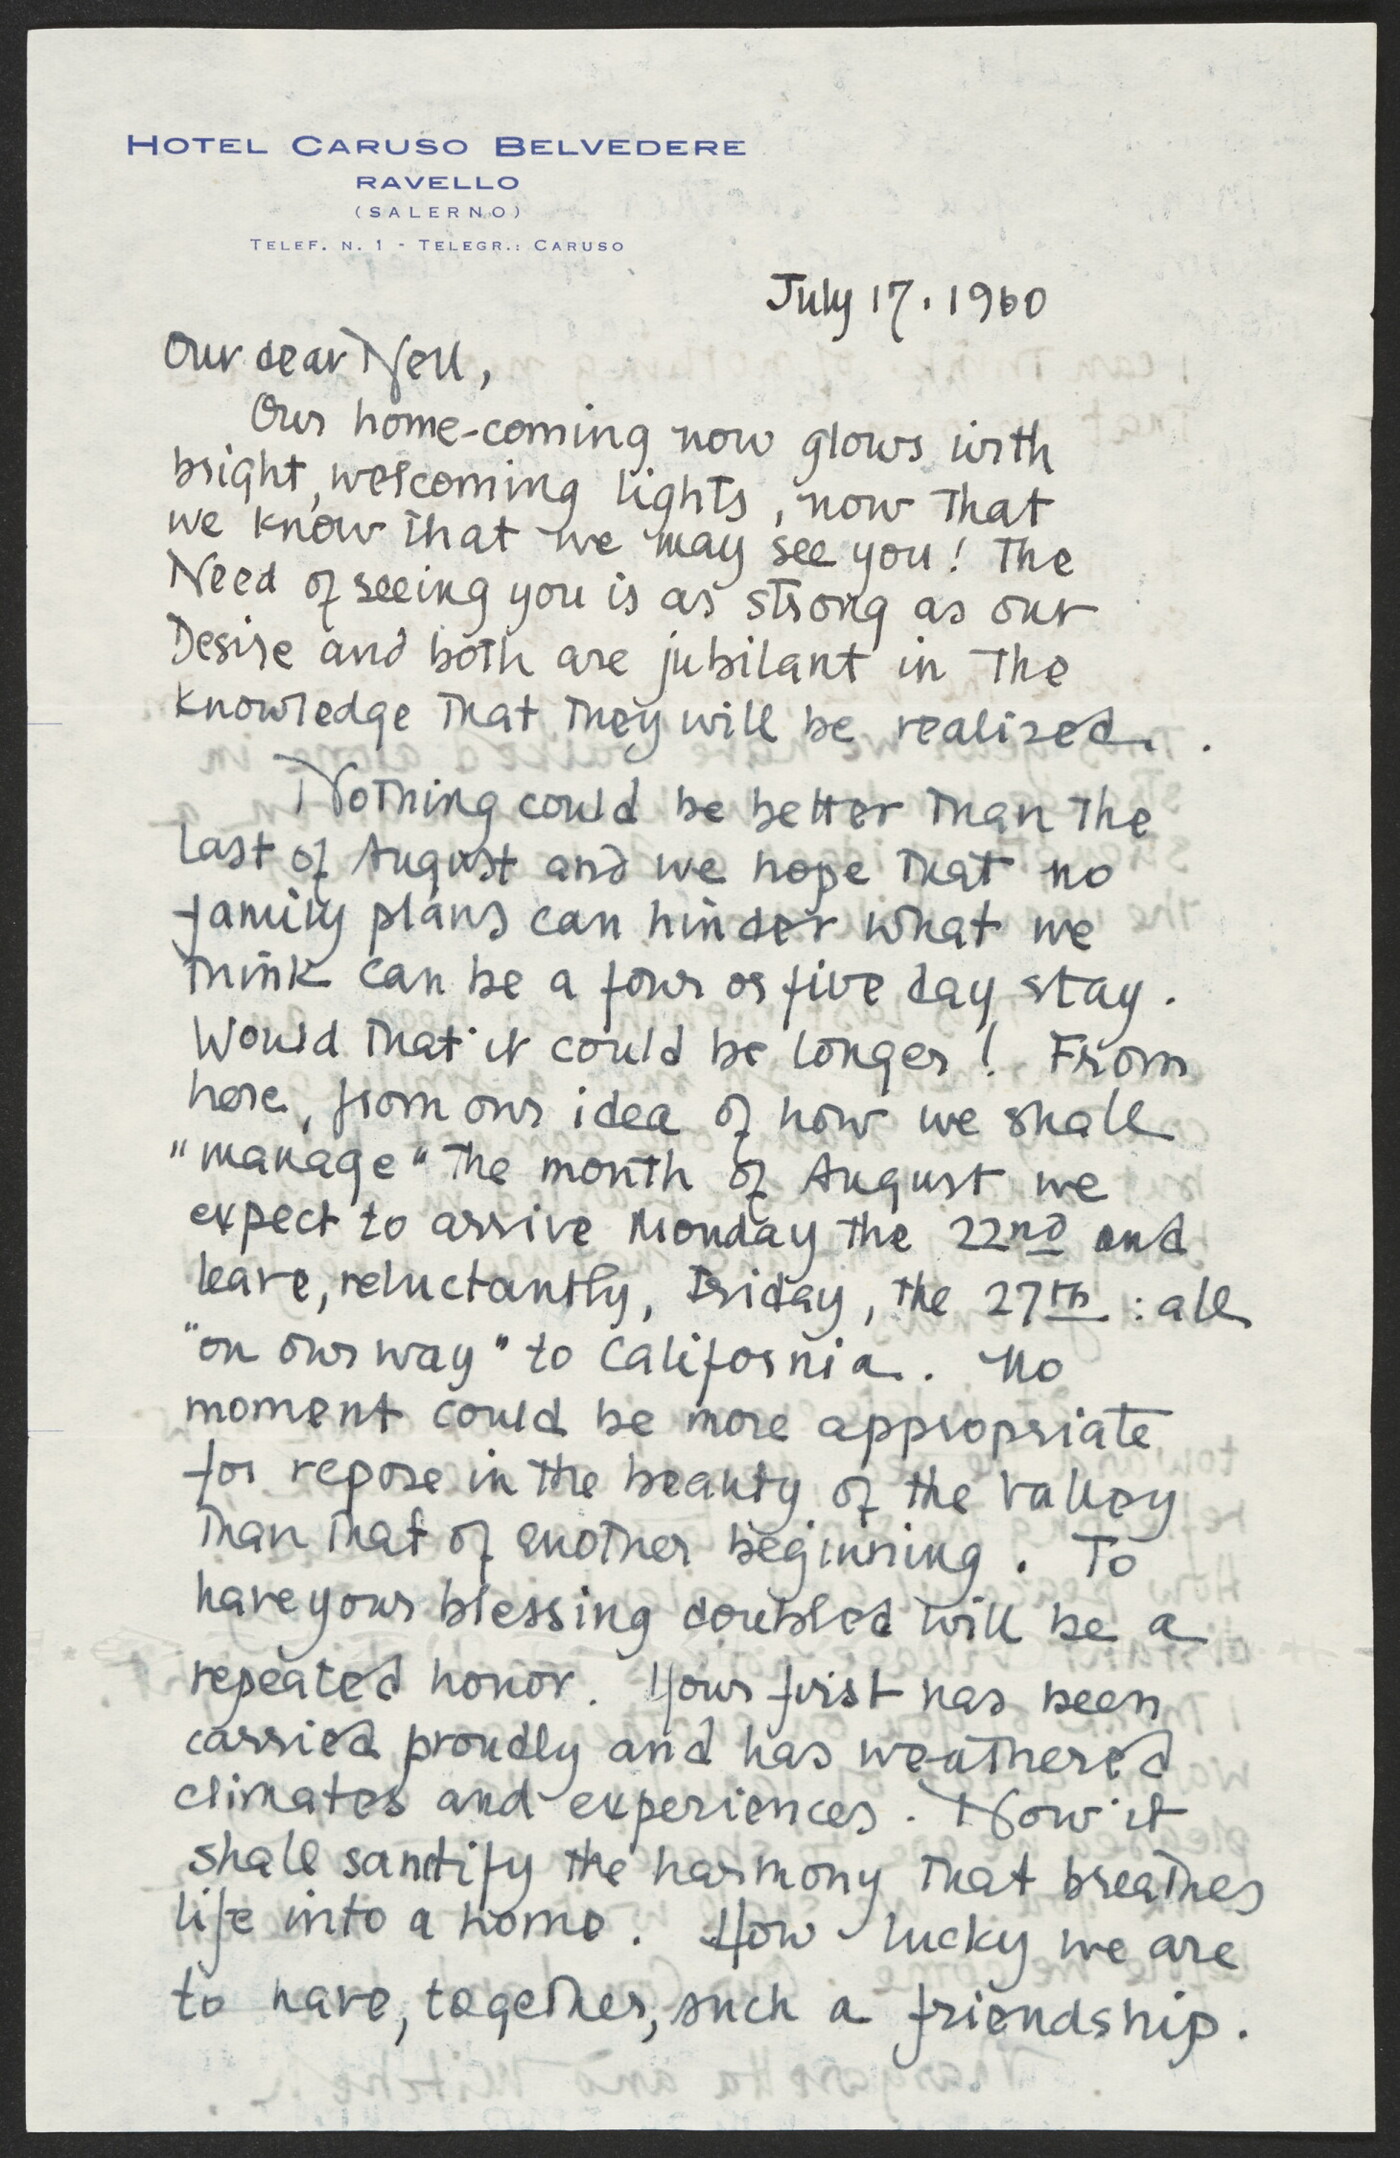 HOTEL CARUSO BELVEDERE
RAVELLO
(SALERNO)
TELEF. N. 1 - TELEGR.: CARUSO
July 17. 1960
Our dear Nell,
Our home-coming now glows with
bright, welcoming lights, now that
we know that we may see you! The
Need of seeing you is as strong as our
Desire and both are jubilant in the
knowledge that they will be realized.
Nothing could be better than the
last of August and we hope that no
family plans can hinder what we
think can be a four or five day stay.
Would that it could be longer! From
here, from our idea of how we shall
"manage" the month of August we
expect to arrive Monday the 22nd and
leave, reluctantly, Friday, the 27th: all
"on our way" to California. No
moment could be more appropriate
for repose in the beauty of the Valley
than that of another beginning. To
have your blessing doubled will be a
repeated honor. Your first has been
carried proudly and has weathered
climates and experiences. Now it
shall santify the harmony that breathes
life into a home. How lucky we are
to have, together, such a friendship.